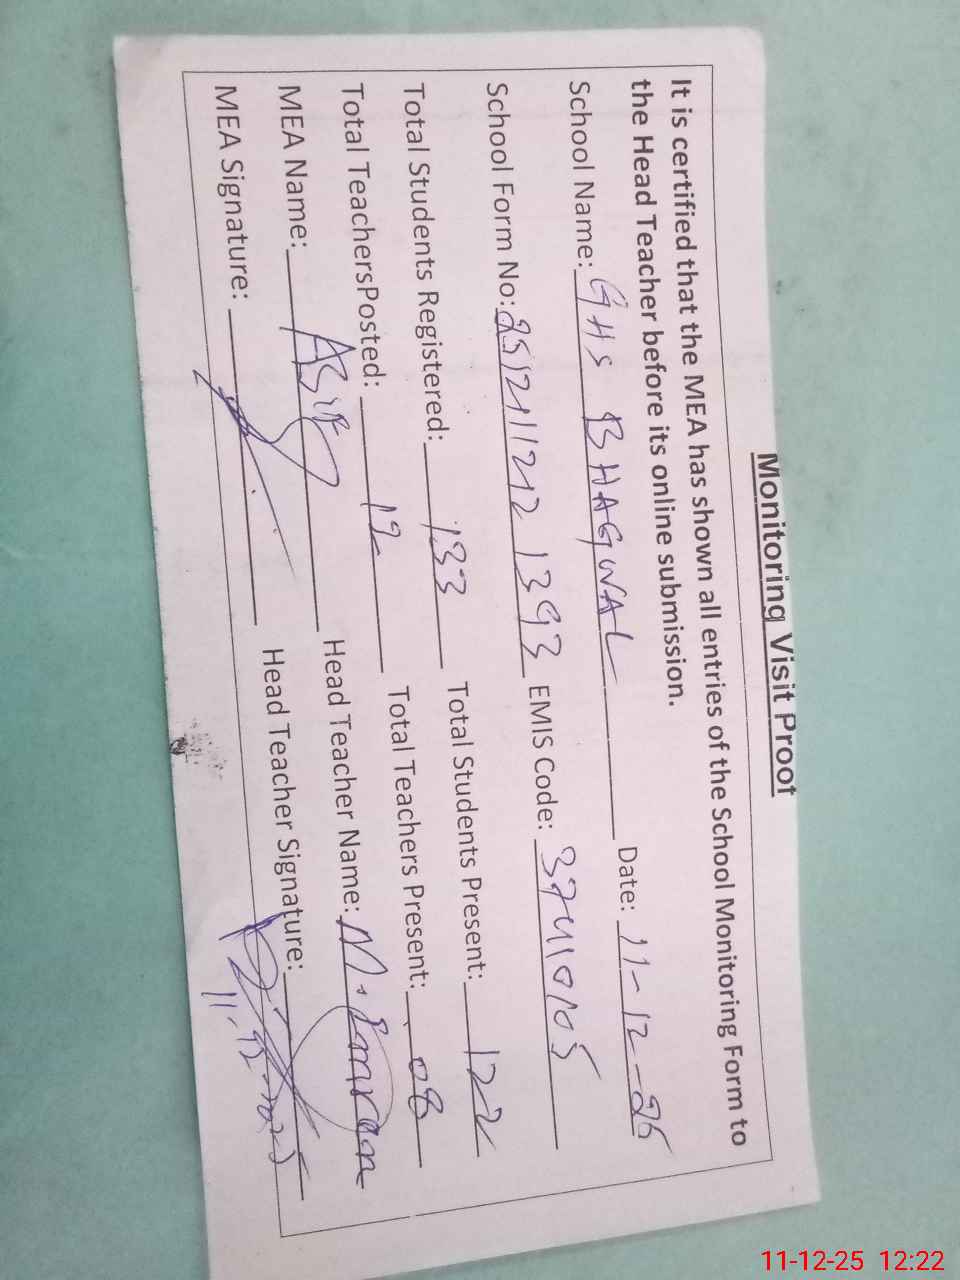 Monitoring Visit Proof
It is certified that the MEA has shown all entries of the School Monitoring Form to
the Head Teacher before its online submission.
School Name: GHS BHAGWAL Date: 11-12-25
School Form No: 251211212 1393 EMIS Code: 37410105
Total Students Registered: 133 Total Students Present: 122
Total TeachersPosted: 12 Total Teachers Present: 08
MEA Name: Asif Head Teacher Name: M. Imran
MEA Signature: Head Teacher Signature:
11-12-2025
11-12-25 12:22